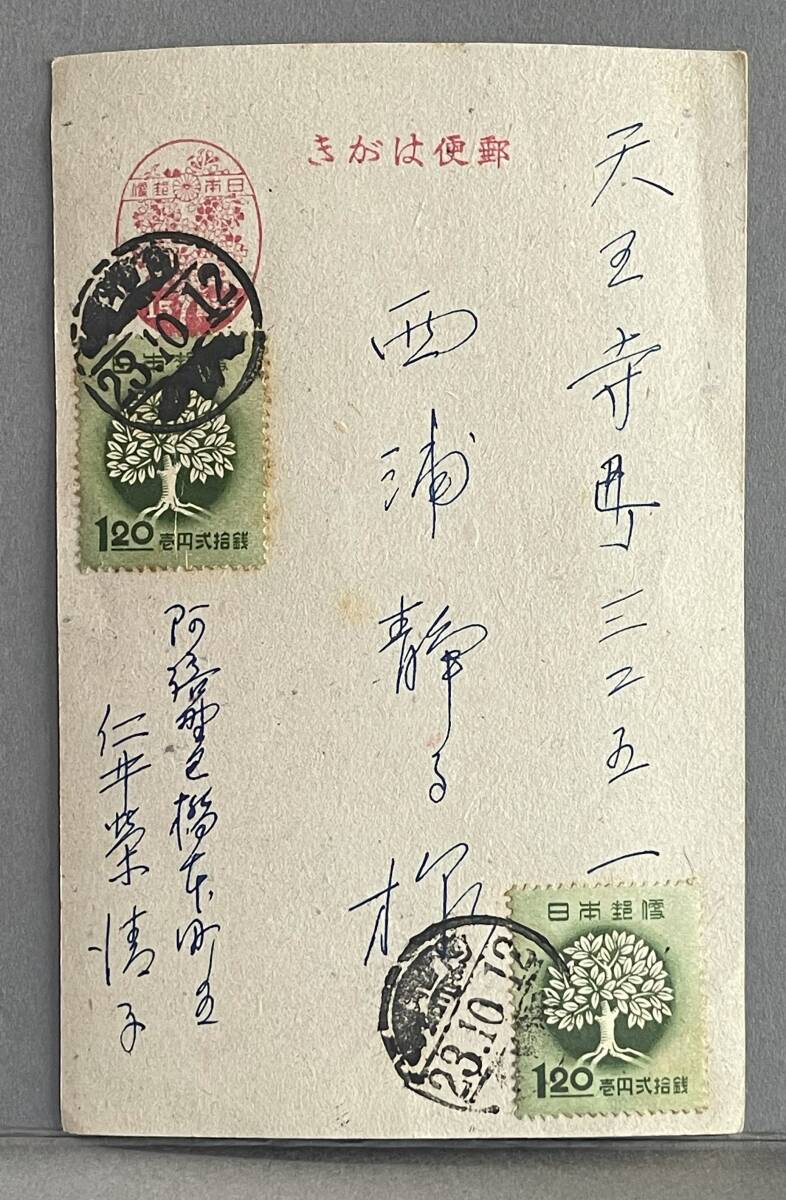 郵便はがき
天王寺町三二五一
西浦静子様
阿倍野区橋本町五
仁井栄清子
日本郵便
23.10.12
日本郵便
1.20 壱円弐拾銭
23.10.12
日本郵便
1.20 壱円弐拾銭